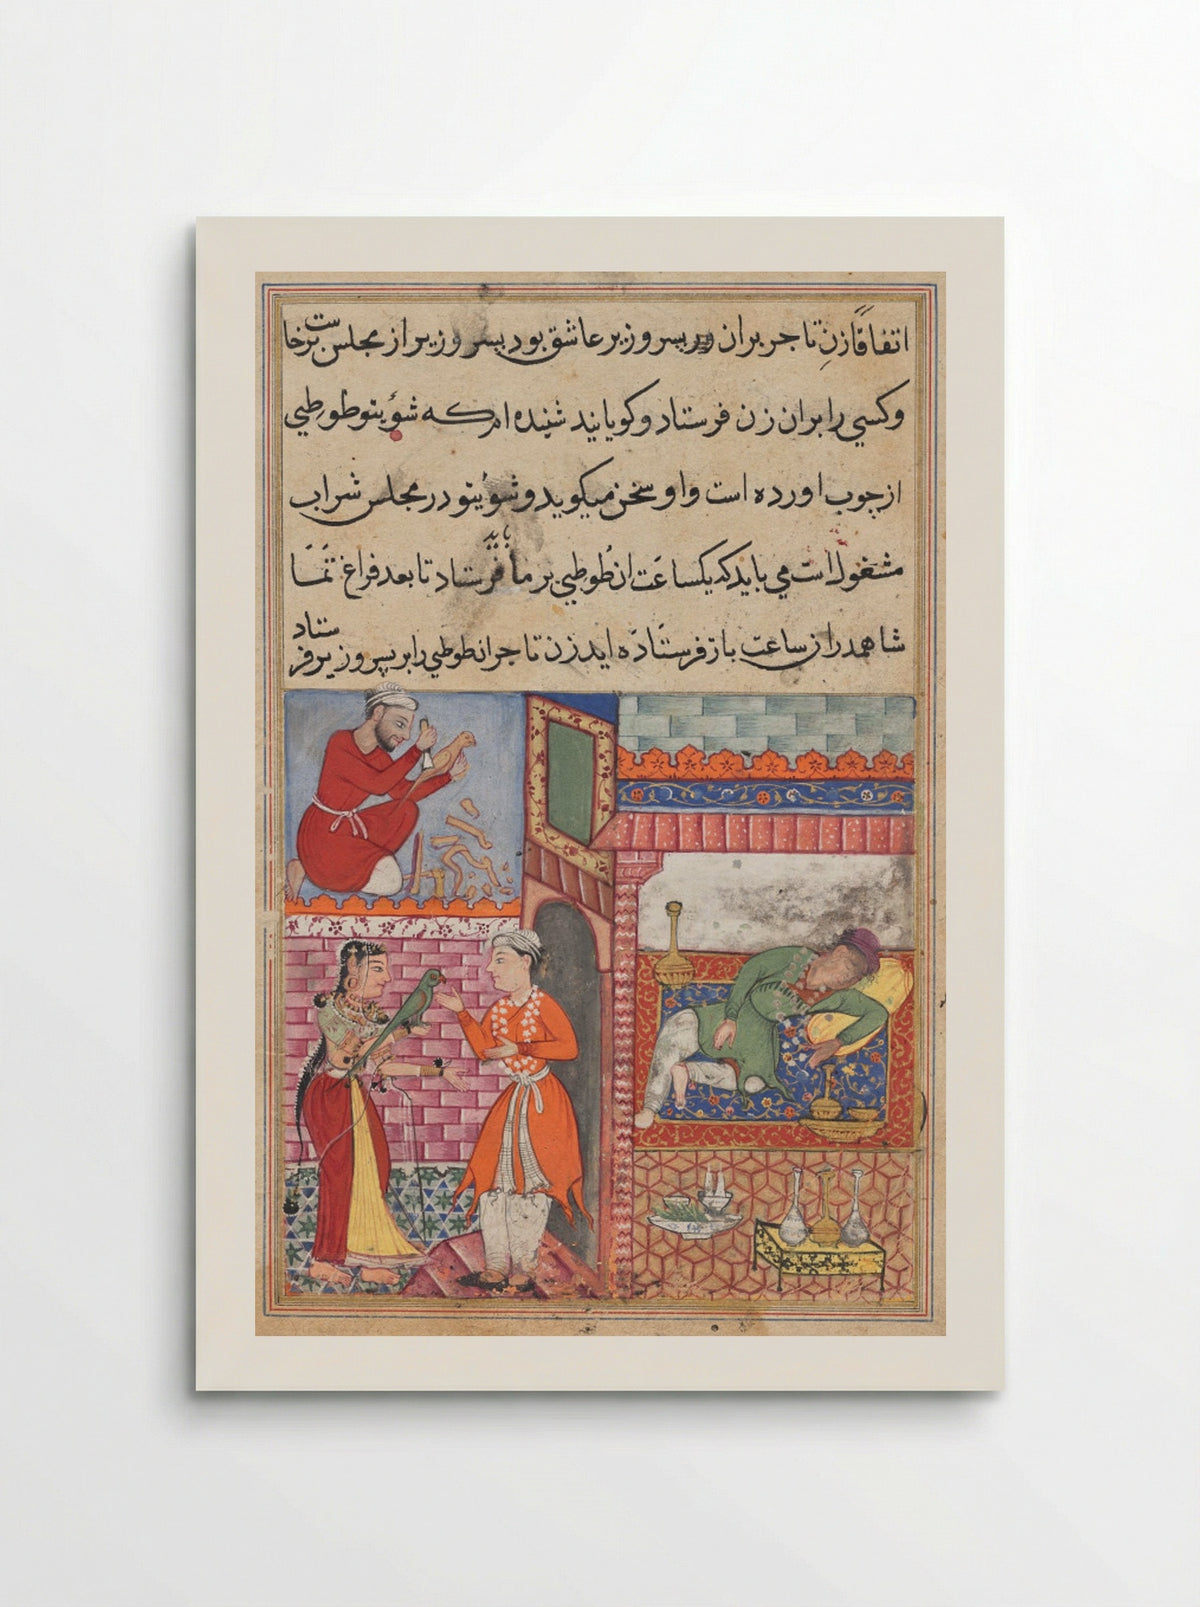 اتفاقًا زنِ تاجر بران پسر وزیر عاشق بود پسر وزیر از مجلس برخاست
و کسی را بران زن فرستاد و کویانید شنیده ام که شؤیتو طوطیی
از چوب اورده است و او سخن میکوید و شؤیتو در مجلس شراب
مشغول است می باید که یکساعَت ان طوطیی بر ما باید فرستاد تا بعد فراغ تماشا
شا همدران ساعت باز فرستاده اید زن تاجر ان طوطیی را بر پسر وزیر فرستاد